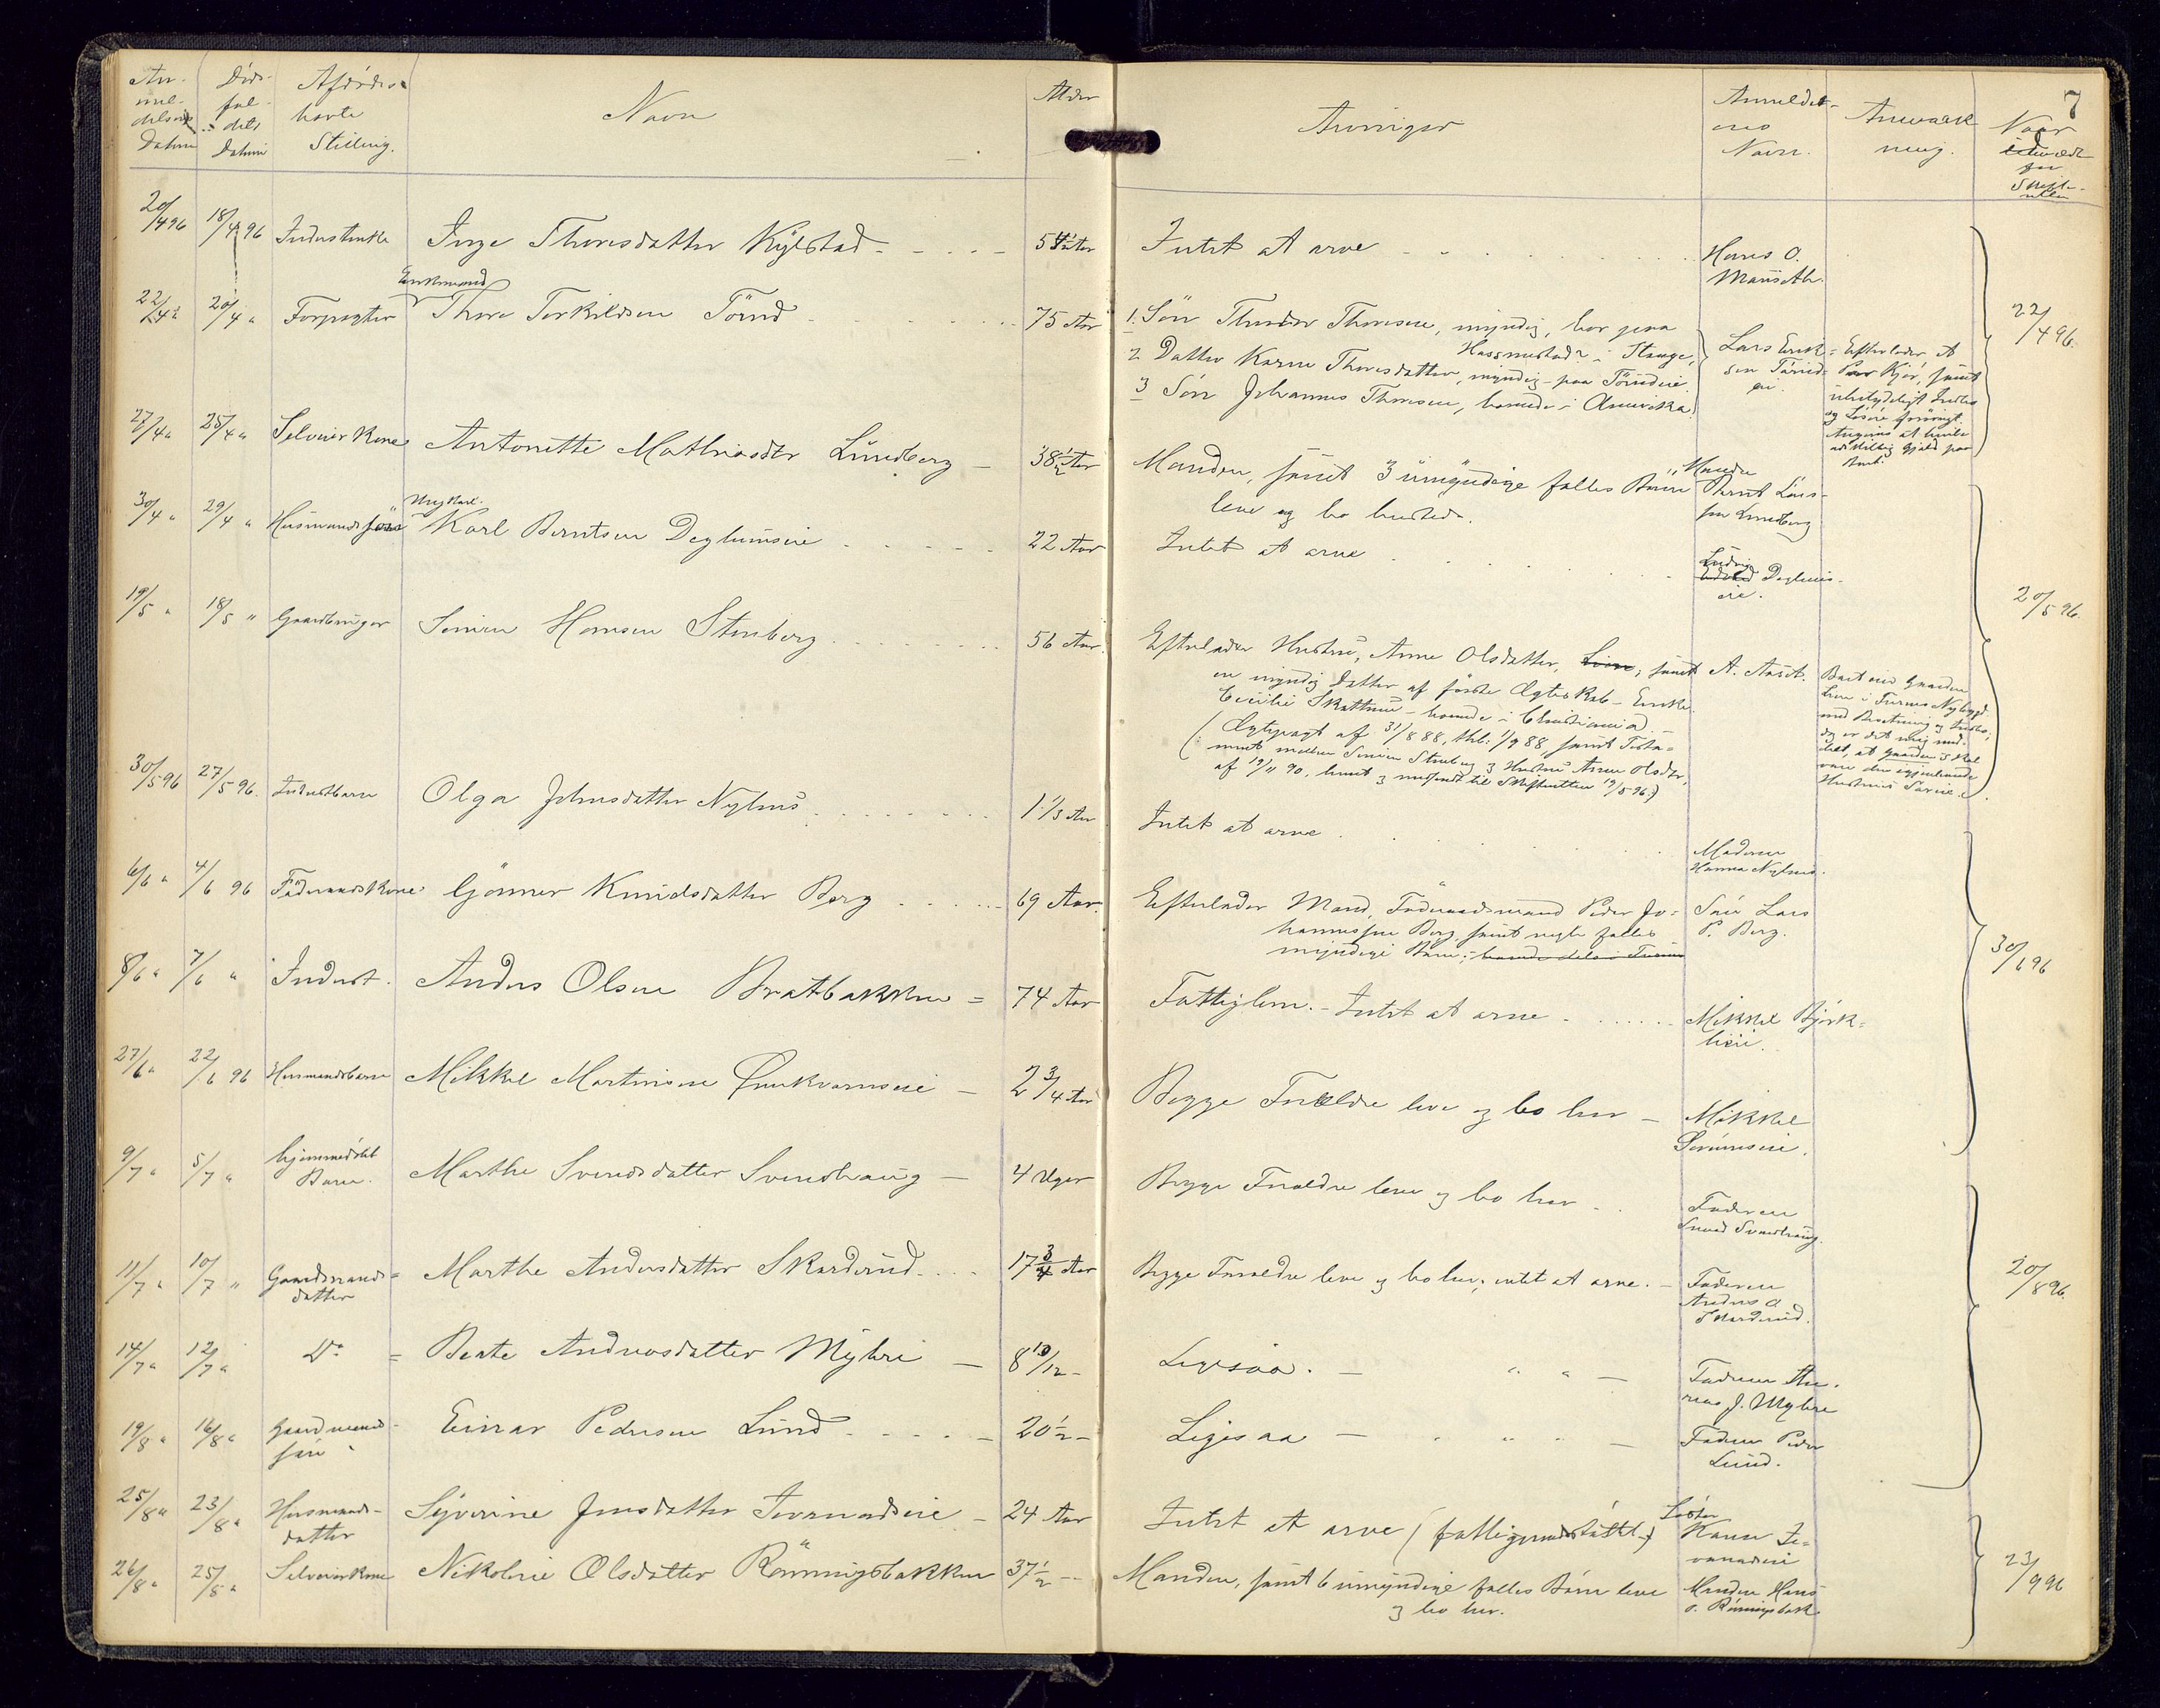 7
An-
mel-
delsens
Datum
Døds-
fal-
dets
Datum
Afdødes
havte
Stilling.
Navn
Alder
Arvinger
Anmelder-
ens
Navn.
Anmærk
ning.
Naar
for
Skifte-
retten
20/4 96 18/4 96 Inderstenke Inge Thoresdatter Kylstad 54 1/2 Aar Intet at arve
Hans O.
Enkemand
22/4 " 20/4 " Forpagter Thore Torkildsen Törud 75 Aar 1. Søn Theodor Thoresen, myndig, bor paa
i Stange,
2 Datter Karen Thoresdatter, myndig - paa Törudeie.
3 Søn Johannes Thoresen, boende i Amerika.
Lars Erik-
sen Törud-
eie.
Efterlader et
Par Kjør, samt
ubetydeligt Indbo
og Løsøre forøvrigt.
27/4 " 25/4 " Selveierkone Antonette Mathiasdtr Lundberg 38 1/2 Aar Manden, samt 3 umyndige fælles Børn
leve og bo hersteds.
Manden
Bernt Lars-
sen Lundberg
Ungkarl.
30/4 " 29/4 " Husmandssøn Karl Berntsen Deglumseie 22 Aar Intet at arve
Ludvig
Deglums-
eie.
22/4 96.
19/5 " 18/5 " Gaardbruger Simen Hansen Stenberg 56 Aar. Efterlader Hustru, Anne Olsdatter, samt
en myndig Datter af første Ægteskab - Enke
Cecilie Skattum - boende i Christiania. -
(: Ægtepagt af 31/8 88, thl: 1/9 88, samt Testa-
ment mellem Simen Stenberg og Hustru Anne Olsdtr,
af 19/11 90, laant og medsendt til Skifteretten 19/5 96:)
A.
20/5 96.
30/5 96 27/5 96. Inderstbarn Olga Johnsdatter Nyhus 1 1/3 Aar Intet at arve
Moderen
Hanna Nyhus.
6/6 " 4/6 96 Föderaadskone Gönner Knudsdatter Berg 69 Aar. Efterlader Mand, Föderaadsmand Peder Jo-
hannessen Berg, samt fælles
myndige Børn;
Søn Lars
P. Berg.
8/6 " 7/6 " Inderst. Anders Olsen Bratbakken 74 Aar Fattiglem. - Intet at arve
Mikkel Bjørk-
lieie.
27/6 " 22/6 96 Husmandsbarn Mikkel Martinsen 2 3/4 Aar Begge Forældre leve og bo her
Mikkel
30/6 96
9/7 " 5/7 " hjemmedöbt
Barn. Marthe Svendsdatter Svendhaug 4 Uger Begge Forældre leve og bo her
Faderen
Svend Svendhaug.
11/7 " 10/7 " Gaardmands-
datter Marthe Andersdatter Skarderud 17 3/4 Aar Begge Forældre leve og bo her; intet at arve. -
Faderen
Anders O
Skarderud.
14/7 " 12/7 " Do Beate Andreasdatter Myhre 8 10/12 - Ligesaa. -
Faderen An-
reas J. Myhre
19/8 " 16/8 " Gaardmands-
søn Einar Pedersen Lund 20 1/2 - Ligesaa
Faderen Peder
Lund.
20/8 96.
25/8 " 23/8 " Husmands-
datter Syverine Jensdatter 24 Aar Intet at arve (fattigunderstøttet)
Søster
Karen
26/8 " 25/8 " Selveierkone Nikoline Olsdatter Rönningsbakken 37 1/2 - Manden, samt 6 umyndige fælles Børn leve
og bo her.
Manden Hans
O. Rönningsbak.
23/9 96